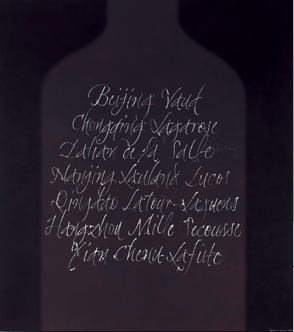 Beijing Vaud
Chongqing Lagarose
Dalian de la Salle
Nanjing Lauland Lucos
Qingdao Latour-Laguens
Hangzhou Mille Secousse
Xian Chenu-Lafitte